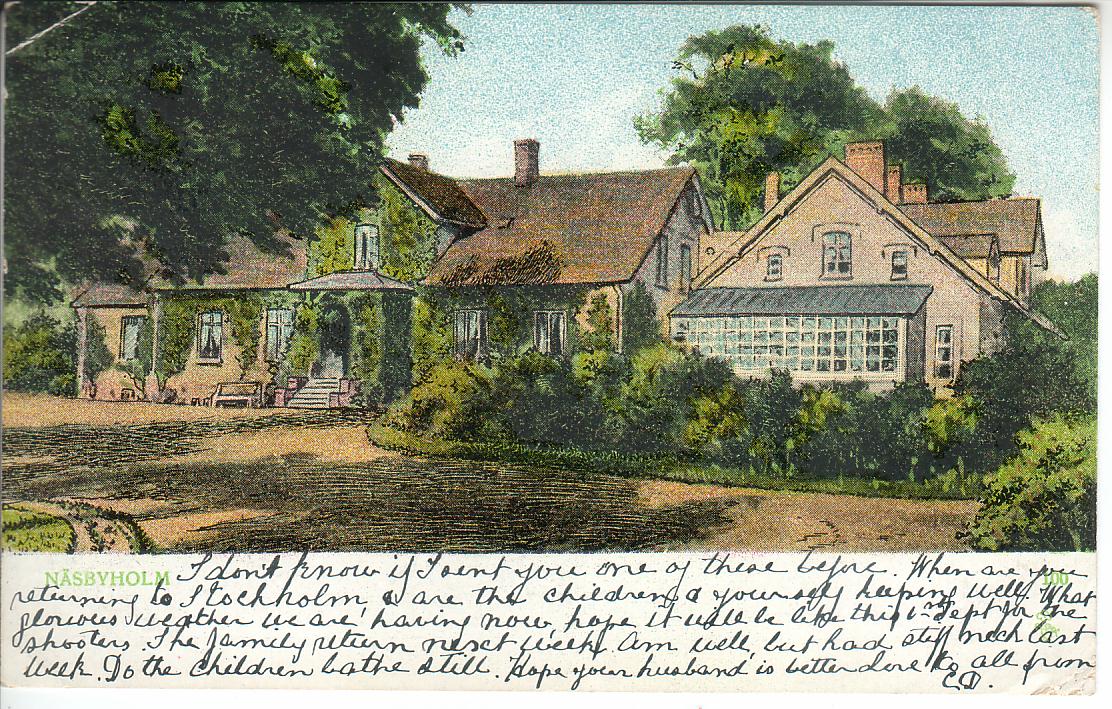 NÄSBYHOLM I don't know if I sent you one of these before. When are you
returning to Stockholm, & are the children & yourself keeping well. What
glorious weather we are having now, hope it will be like this 1st Sept for the
shooters. The family return next week. Am well, but had stiff neck last
week. Do the children bathe still. Hope your husband is better. Love to all from
CD.
100